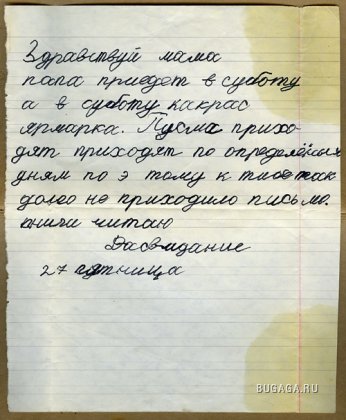 Здравствуй мама
папа приедет в суботу
а в суботу какрас
ярмарка. Писма прихо-
дят приходят по определёным
дням по э тому к тибе так
долго не приходило письмо.
книги читаю
Дасвидание
27 пятница
BUGAGA.RU